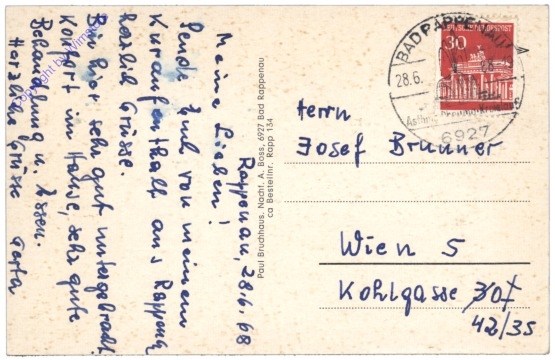 Rappenau, 28.6.68
Meine Lieben!
Sende Euch von meinem
Kuraufenthalt aus Rappenau
herzlich Grüsse.
Bin hier sehr gut untergebracht
Komfort im Hause, sehr gute
Behandlung u. Essen.
Herzliche Grüsse
Paul Bruchhaus. Nachf. A. Boss, 6927 Bad Rappenau
ca Bestellnr. Rapp 154
BAD RAPPENAU
28.6.
6927
DEUTSCHE BUNDESPOST
30
Herrn
Josef Brunner
Wien 5
Kohlgasse 30/
42/35
Copyright by